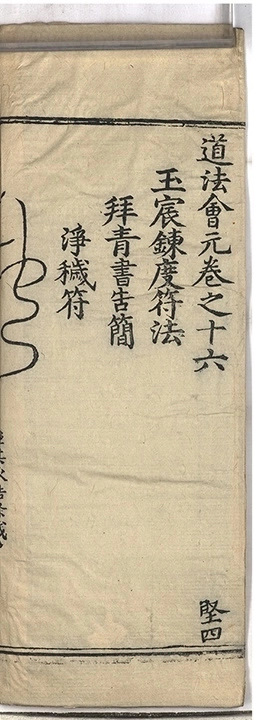 道法會元卷之十六
堅四
玉宸鍊度符法
拜青書告簡
淨穢符